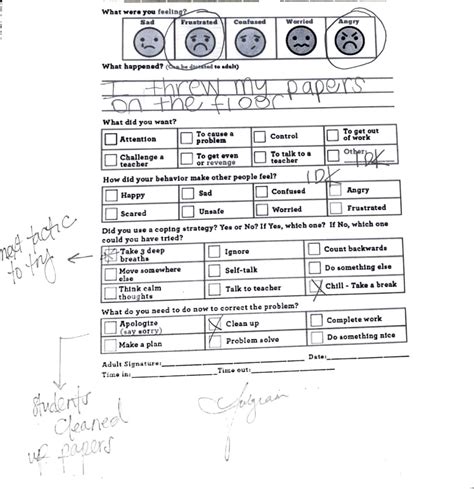 What were you feeling?
Sad Frustrated Confused Worried Angry
What happened? (Can be dictated to adult)
I threw my papers
on the floor
What did you want?
Attention To cause a problem Control To get out of work
Challenge a teacher To get even or revenge To talk to a teacher Other: IDK
How did your behavior make other people feel? IDK
Happy Sad Confused Angry
Scared Unsafe Worried Frustrated
Did you use a coping strategy? Yes or No? If Yes, which one? If No, which one
could you have tried?
Take 3 deep breaths Ignore Count backwards
Move somewhere else Self-talk Do something else
Think calm thoughts Talk to teacher Chill - Take a break
tactic
to try
What do you need to do now to correct the problem?
Apologize (say sorry) Clean up Complete work
Make a plan Problem solve Do something nice
Adult Signature: Date:
Time in: Time out:
students
cleaned
up papers